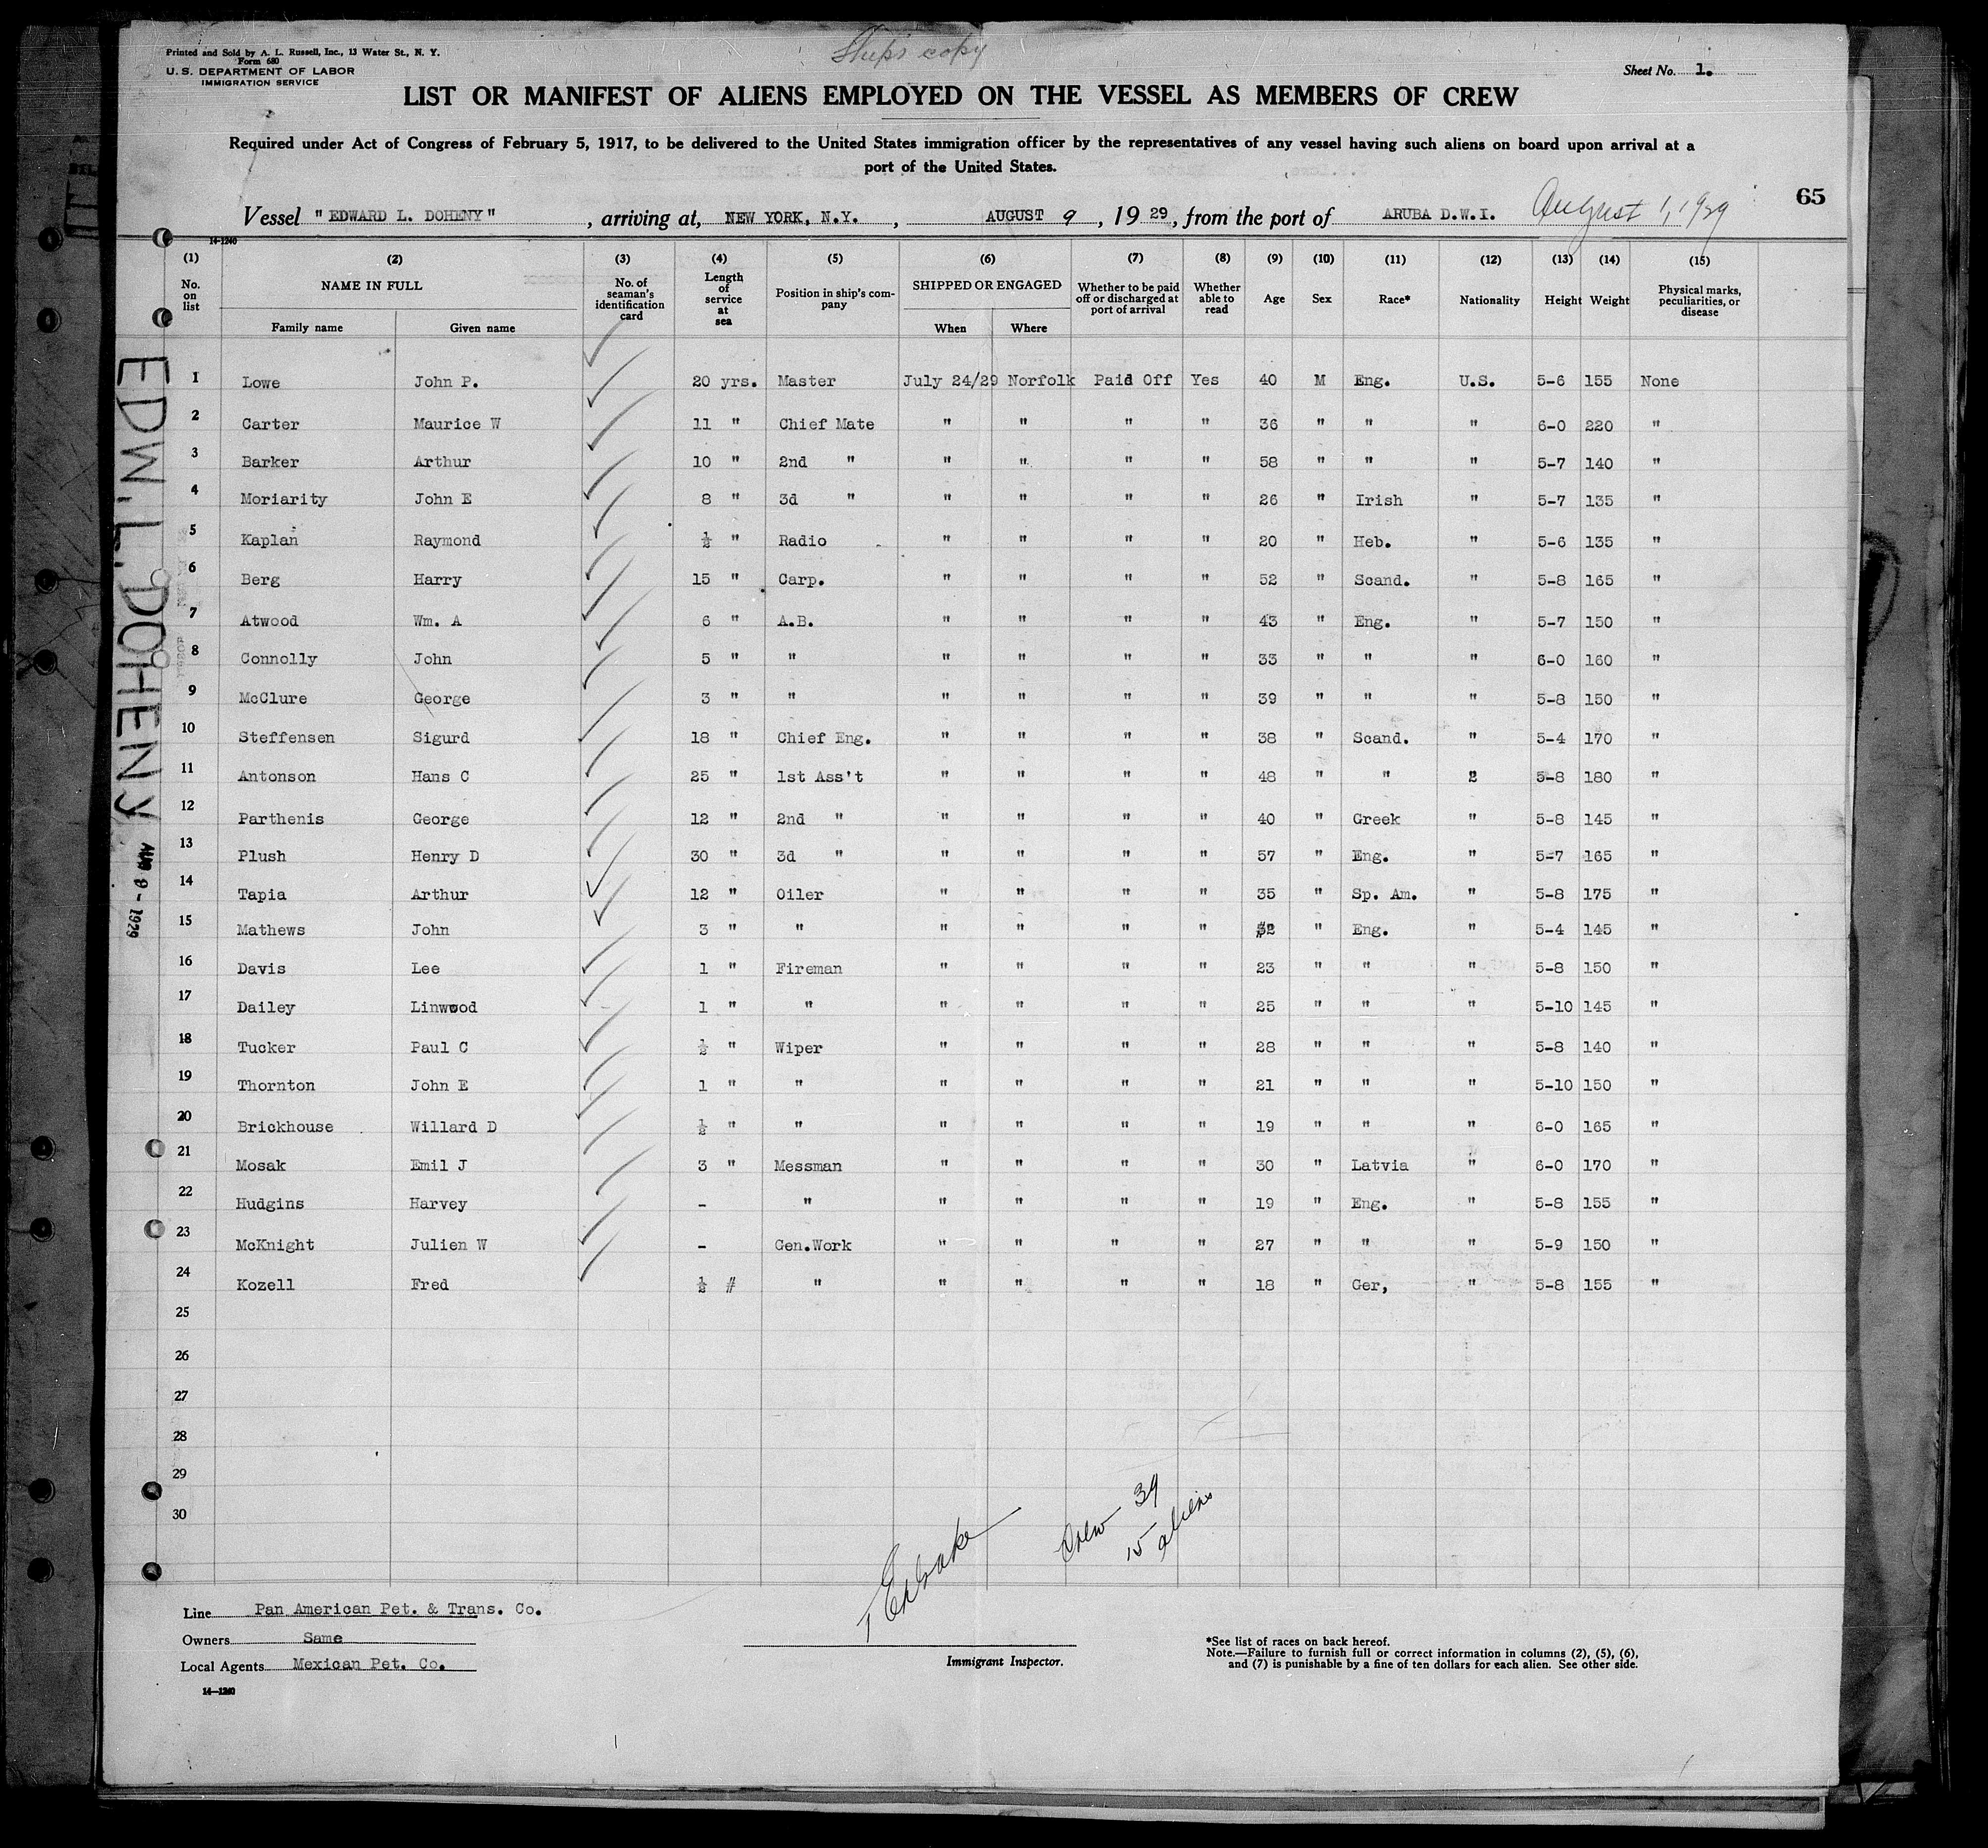 Ship's copy
Printed and Sold by A. L. Russell, Inc., 13 Water St., N. Y.
Form 680
U. S. DEPARTMENT OF LABOR
IMMIGRATION SERVICE
Sheet No. 1.
LIST OR MANIFEST OF ALIENS EMPLOYED ON THE VESSEL AS MEMBERS OF CREW
Required under Act of Congress of February 5, 1917, to be delivered to the United States immigration officer by the representatives of any vessel having such aliens on board upon arrival at a
port of the United States.
65
Vessel "EDWARD L. DOHENY", arriving at, NEW YORK, N.Y., AUGUST 9, 1929, from the port of ARUBA D.W.I. August 1, 1929
14-1240
(1) (2) (3) (4) (5) (6) (7) (8) (9) (10) (11) (12) (13) (14) (15)
No. on list NAME IN FULL Family name Given name No. of seaman's identification card Length of service at sea Position in ship's company SHIPPED OR ENGAGED When Where Whether to be paid off or discharged at port of arrival Whether able to read Age Sex Race* Nationality Height Weight Physical marks, peculiarities, or disease
1 Lowe John P. 20 yrs. Master July 24/29 Norfolk Paid Off Yes 40 M Eng. U.S. 5-6 155 None
2 Carter Maurice W 11 " Chief Mate " " " " 36 " " " 6-0 220 "
3 Barker Arthur 10 " 2nd " " " " " 58 " " " 5-7 140 "
4 Moriarity John E 8 " 3d " " " " " 26 " Irish " 5-7 135 "
5 Kaplan Raymond ½ " Radio " " " " 20 " Heb. " 5-6 135 "
6 Berg Harry 15 " Carp. " " " " 52 " Scand. " 5-8 165 "
7 Atwood Wm. A 6 " A.B. " " " " 43 " Eng. " 5-7 150 "
8 Connolly John 5 " " " " " " 33 " " " 6-0 160 "
9 McClure George 3 " " " " " " 39 " " " 5-8 150 "
10 Steffensen Sigurd 18 " Chief Eng. " " " " 38 " Scand. " 5-4 170 "
11 Antonson Hans C 25 " 1st Ass't " " " " 48 " " 2 5-8 180 "
12 Parthenis George 12 " 2nd " " " " " 40 " Greek " 5-8 145 "
13 Plush Henry D 30 " 3d " " " " " 57 " Eng. " 5-7 165 "
14 Tapia Arthur 12 " Oiler " " " " 35 " Sp. Am. " 5-8 175 "
15 Mathews John 3 " " " " " " 32 " Eng. " 5-4 145 "
16 Davis Lee 1 " Fireman " " " " 23 " " " 5-8 150 "
17 Dailey Linwood 1 " " " " " " 25 " " " 5-10 145 "
18 Tucker Paul C ½ " Wiper " " " " 28 " " " 5-8 140 "
19 Thornton John E 1 " " " " " " 21 " " " 5-10 150 "
20 Brickhouse Willard D ½ " " " " " " 19 " " " 6-0 165 "
21 Mosak Emil J 3 " Messman " " " " 30 " Latvia " 6-0 170 "
22 Hudgins Harvey - " " " " " 19 " Eng. " 5-8 155 "
23 McKnight Julien W - Gen.Work " " " " 27 " " " 5-9 150 "
24 Kozell Fred ½ # " " " " " 18 " Ger, " 5-8 155 "
25
26
27
28
29
30
EDW. L. DOHENY
AUG 9-1929
Crew 39
15 aliens
Line Pan American Pet. & Trans. Co.
Owners Same
Local Agents Mexican Pet. Co.
14-1240
Immigrant Inspector.
*See list of races on back hereof.
Note.—Failure to furnish full or correct information in columns (2), (5), (6),
and (7) is punishable by a fine of ten dollars for each alien. See other side.